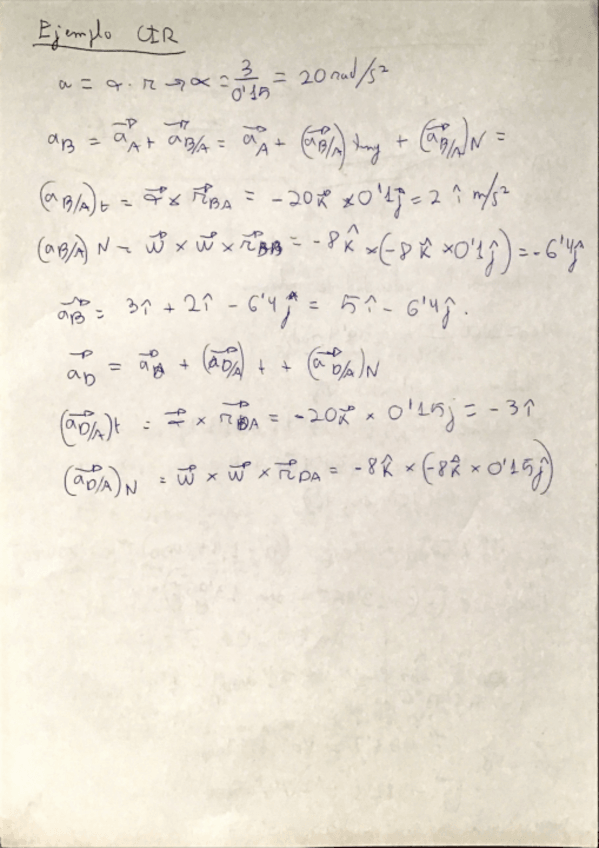 Ejemplo CIR
a = α · r → α = 3/0'15 = 20 rad/s²
aB = a⃗A + a⃗B/A = a⃗A + (a⃗B/A) tng + (a⃗B/A)N =
(aB/A)t = α⃗ × r⃗BA = -20k⃗ × 0'1j⃗ = 2 î m/s²
(aB/A) N = w⃗ × w⃗ × r⃗ = -8k̂ × (-8k̂ × 0'1ĵ) = -6'4ĵ
a⃗B = 3î + 2î - 6'4ĵ = 5î - 6'4ĵ.
a⃗D = a⃗A + (a⃗D/A) t + (a⃗D/A)N
(a⃗D/A)t = α⃗ × r⃗DA = -20k⃗ × 0'15j = -3î
(a⃗D/A)N = w⃗ × w⃗ × r⃗DA = -8k̂ × (-8k̂ × 0'15ĵ)